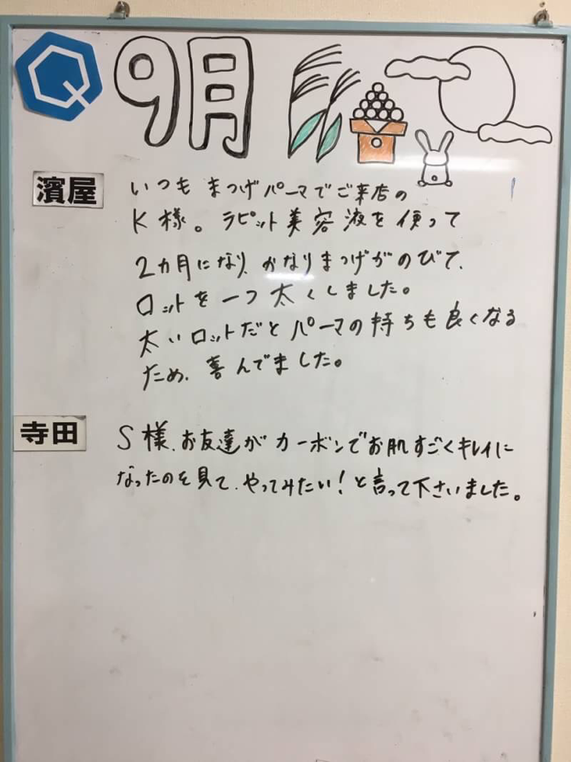 Q 9月
濱屋
いつも まつげパーマでご来店の
K様。ラピット美容液を使って
2カ月になり、かなりまつげがのびて、
ロットを一つ太くしました。
太いロットだとパーマの持ちも良くなる
ため、喜んでました。
寺田
S様、お友達がカーボンでお肌すごくキレイに
なったのを見て、やってみたい!と言って下さいました。